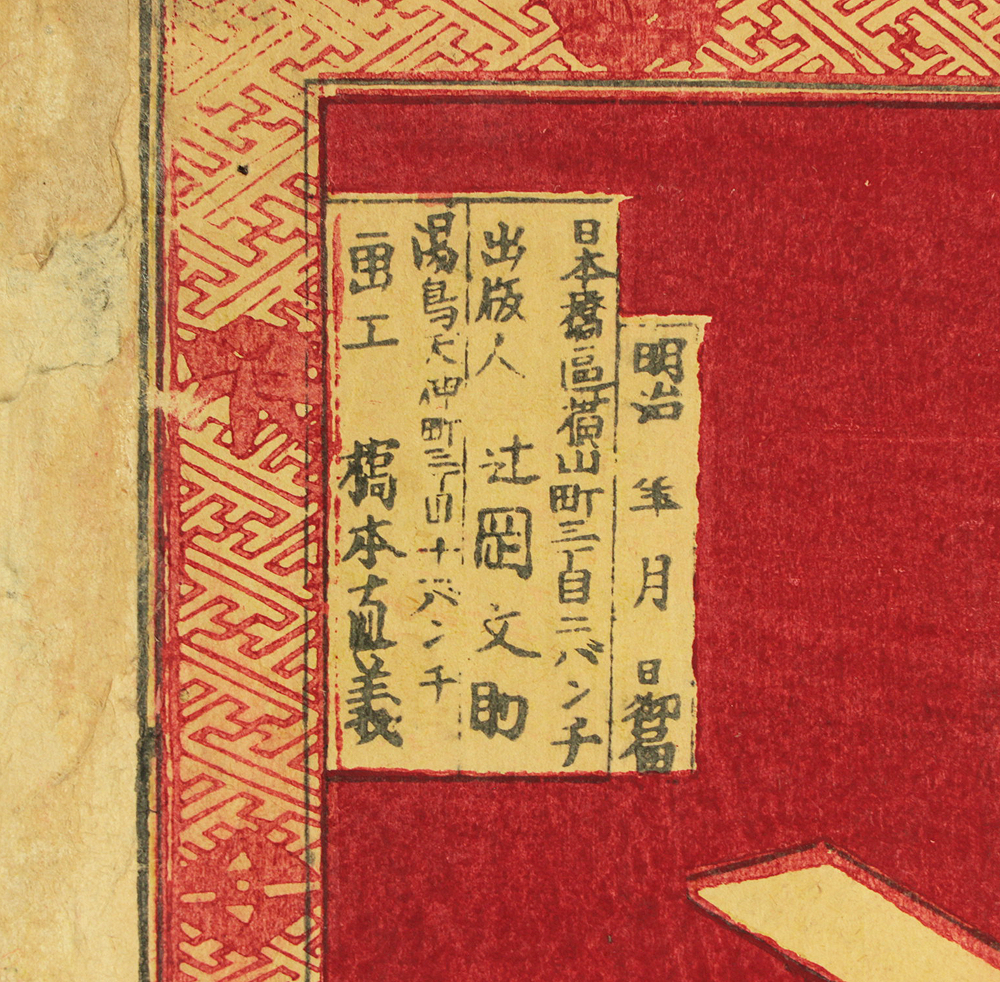 明治 年 月 日御届
日本橋區橫山町三丁目二バンチ
出版人 辻岡文助
湯島天神町三丁目十六バンチ
画工 橋本直義